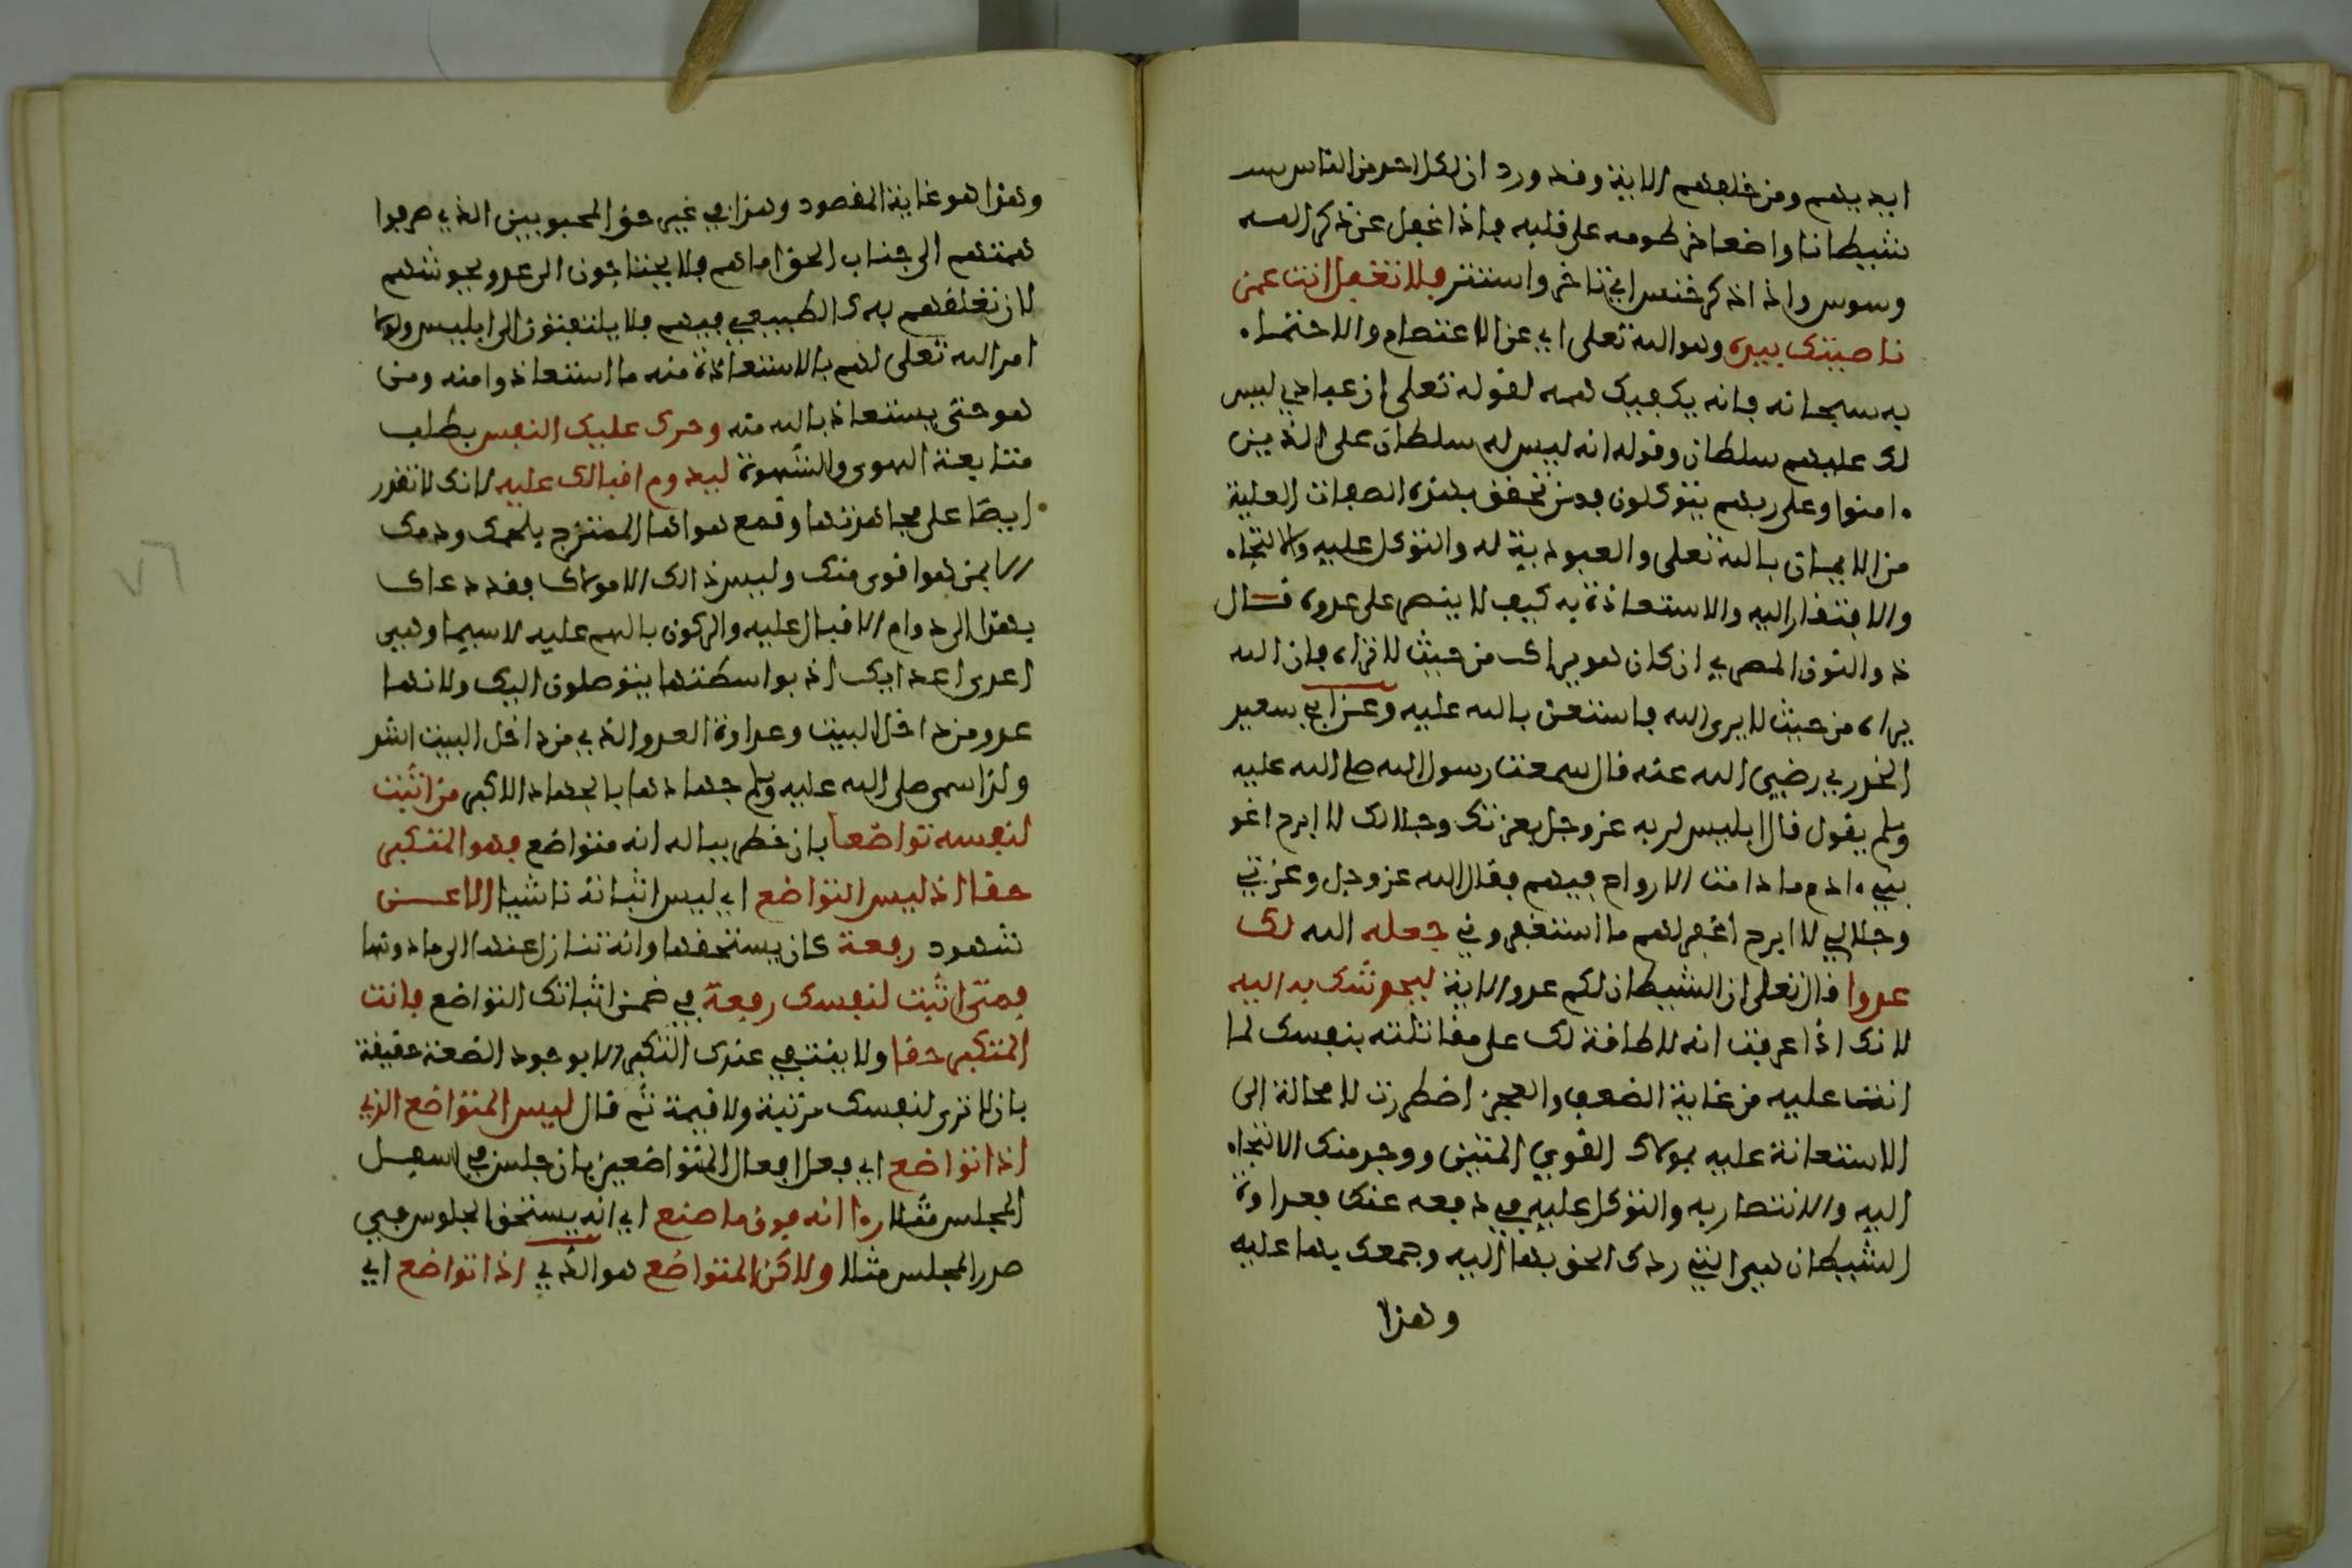 ايديهم ومن خلفهم الاية وقد ورد ان لكل احد من الناس
شيطانا واضعا خرطومه على قلبه فاذا غفل عن ذكر الله
وسوس واذا ذكر خنس اي تاخر واستتر فلا تغفل انت عمن
ناصيتك بيده وهو الله تعلى اي عن الاعتصام والاحتماء
به سبحانه فانه يكفيك همه لقوله تعلى ان عبادي ليس
لك عليهم سلطان وقوله انه ليس له سلطان على الذين
ءامنوا وعلى ربهم يتوكلون فمن تحقق بهذه الصفات العلية
من الايمان بالله تعلى والعبودية له والتوكل عليه والالتجاء
والافتقار اليه والاستعاذة به كيف لا ينصر على عدوه قال
ذو النون المصري ان كان هو يراك من حيث لا تراه فان الله
يراه من حيث لا يرى الله فاستعن بالله عليه وعن ابي سعيد
الخدري رضي الله عنه قال سمعت رسول الله صلى الله عليه
وسلم يقول قال ابليس لربه عز وجل بعزتك وجلالك لا ابرح اغو
بني ءادم ما دامت الارواح فيهم فقال الله عز وجل وعزتي
وجلالي لا ابرح اغفر لهم ما استغفروني جعله الله لك
عدوا قال تعلى ان الشيطان لكم عدو الاية ليحوشك به اليه
لانك اذا عرفت انه لا طاقة لك على مقاتلته بنفسك لما
انت عليه من غاية الضعف والعجز اضطررت لا محالة الى
الاستعانة عليه بمولاك القوي المتين ووجد منك الالتجاء
اليه والانتصار به والتوكل عليه في دفعه عنك فعداوة
الشيطان هي التي ردك الحق بها اليه وجمعك بها عليه
وهذا
وهذا هو غاية المقصود وهذا في غير حق المحبوبين الذي صرفوا
همتهم الى جناب الحق اما هم فلا يحتاجون الى عدو يحوشهم
لان تعلقهم به كالطبيعي فيهم فلا يلتفتون الى ابليس ولولا
امر الله تعلى لهم بالاستعاذة منه ما استعاذوا منه ومن
هو حتى يستعاذ بالله منه وحرك عليك النفس بطلب
متابعة الهوى والشهوة ليدوم اقبالك عليه لانك لا تقدر
ايضا على مجاهدتها وقمع هواها الممتزج بلحمك ودمك
الا بمن هو اقوى منك وليس ذالك الا مولاك فقد دعاك
بهذا الى دوام الاقبال عليه والركون بالهم عليه لاسيما وهي
اعدى اعدايك اذ بواسطتها يتوصلون اليك ولانها
عدو من داخل البيت وعداوة العدو الذي من داخل البيت اشد
ولذا سمى صلى الله عليه وسلم جهادها بالجهاد الاكبر من اثبت
لنفسه تواضعا بان خطر بباله انه متواضع فهو المتكبر
حقا اذ ليس التواضع اي ليس اثباته ناشيا الا عن
شهود رفعة كان يستحقها وانه تنازل عنها الى ما دونها
فمتى اثبت لنفسك رفعة في ضمن اثباتك التواضع فانت
المتكبر حقا ولا ينتفي عندك التكبر الا بوجود الضعة حقيقة
بان لا ترى لنفسك مرتبة ولا قيمة ثم قال ليس المتواضع الذي
اذا تواضع اي فعل افعال المتواضعين بان جلس في اسفل
المجلس مثلا رءا انه فوق ما صنع اي انه يستحق الجلوس في
صدر المجلس مثلا ولاكن المتواضع هو الذي اذا تواضع اي
٧٦